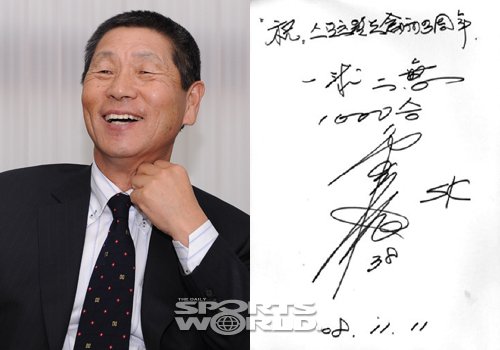 祝. 스포츠월드 創刊 3周年.
一球二無
1000승
SK
38
08. 11. 11
THE DAILY
SPORTS
WORLD